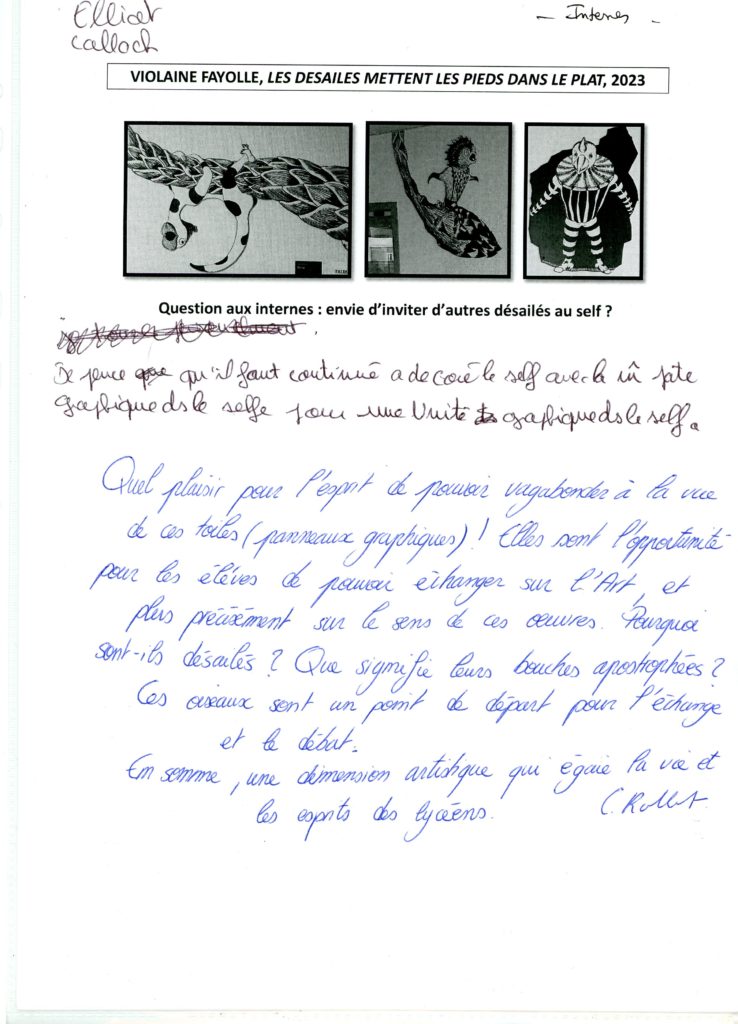 Elliot
Calloch
- Internes -
VIOLAINE FAYOLLE, LES DESAILES METTENT LES PIEDS DANS LE PLAT, 2023
Question aux internes : envie d'inviter d'autres désailés au self ?
Je pence que qu'il faut continué a decoré le self avec la m̂ pate
graphique ds le selfe pour une Unité graphique ds le self.
Quel plaisir pour l'esprit de pouvoir vagabonder à la vue
de ces toiles (panneaux graphiques) ! Elles sont l'opportunité
pour les élèves de pouvoir échanger sur l'Art, et
plus précisément sur le sens de ces oeuvres. Pourquoi
sont-ils désailés ? Que signifie leurs bouches apostrophées ?
Ces oiseaux sont un point de départ pour l'échange
et le débat.
En somme, une dimension artistique qui égaie la vie et
les esprits des lycéens.
C.